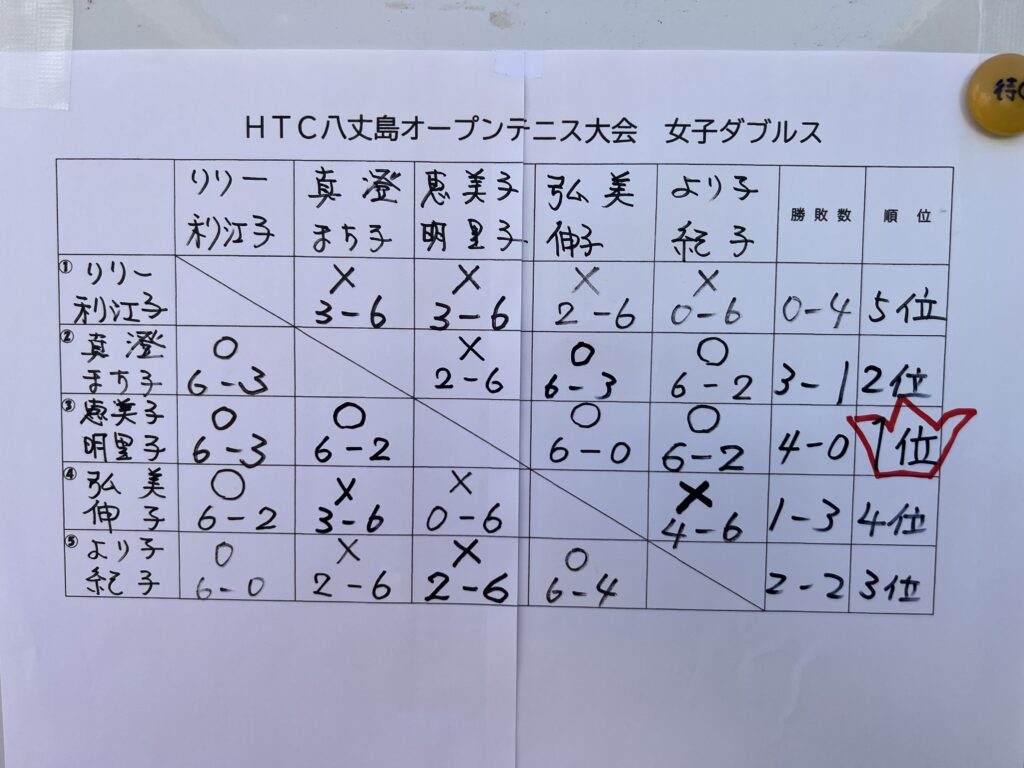 待
HTC八丈島オープンテニス大会 女子ダブルス
リリー 利江子 真澄 まち子 恵美子 明里子 弘美 伸子 より子 紀子 勝敗数 順位
① リリー 利江子 × 3-6 × 3-6 × 2-6 × 0-6 0-4 5位
② 真澄 まち子 ○ 6-3 × 2-6 ○ 6-3 ○ 6-2 3-1 2位
③ 恵美子 明里子 ○ 6-3 ○ 6-2 ○ 6-0 ○ 6-2 4-0 1位
④ 弘美 伸子 ○ 6-2 × 3-6 × 0-6 × 4-6 1-3 4位
⑤ より子 紀子 ○ 6-0 × 2-6 × 2-6 ○ 6-4 2-2 3位